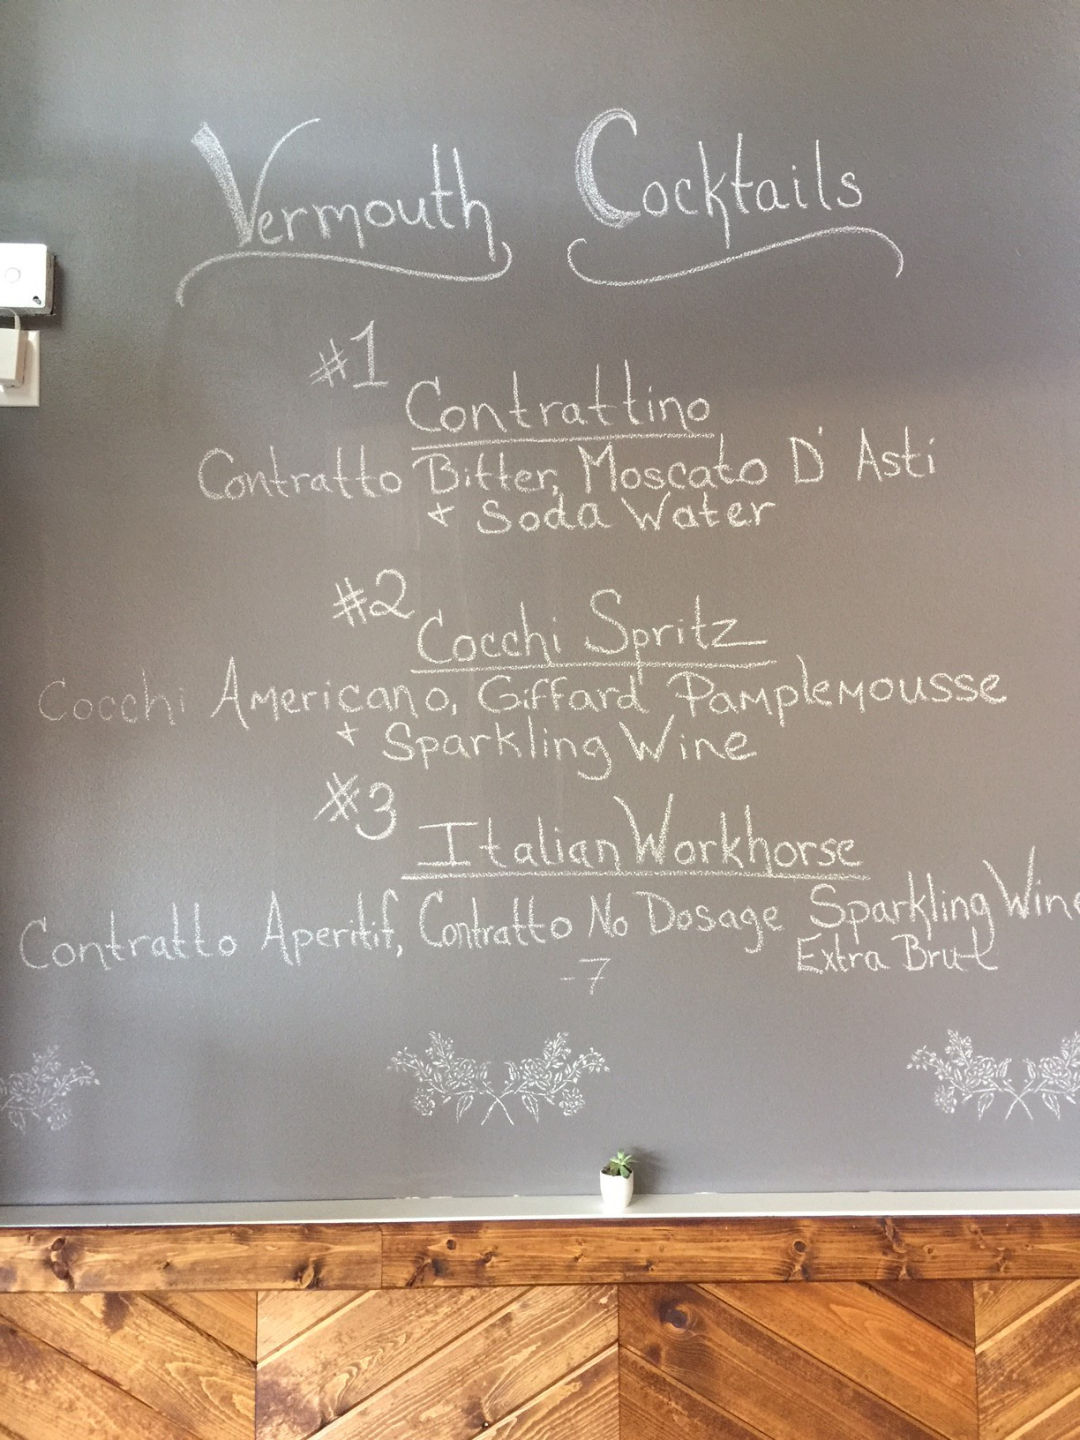 Vermouth Cocktails
#1
Contrattino
Contratto Bitter, Moscato D' Asti
+ Soda Water
#2
Cocchi Spritz
Cocchi Americano, Giffard Pamplemousse
+ Sparkling Wine
#3
Italian Workhorse
Contratto Aperitif, Contratto No Dosage Sparkling Wine
Extra Brut
-7